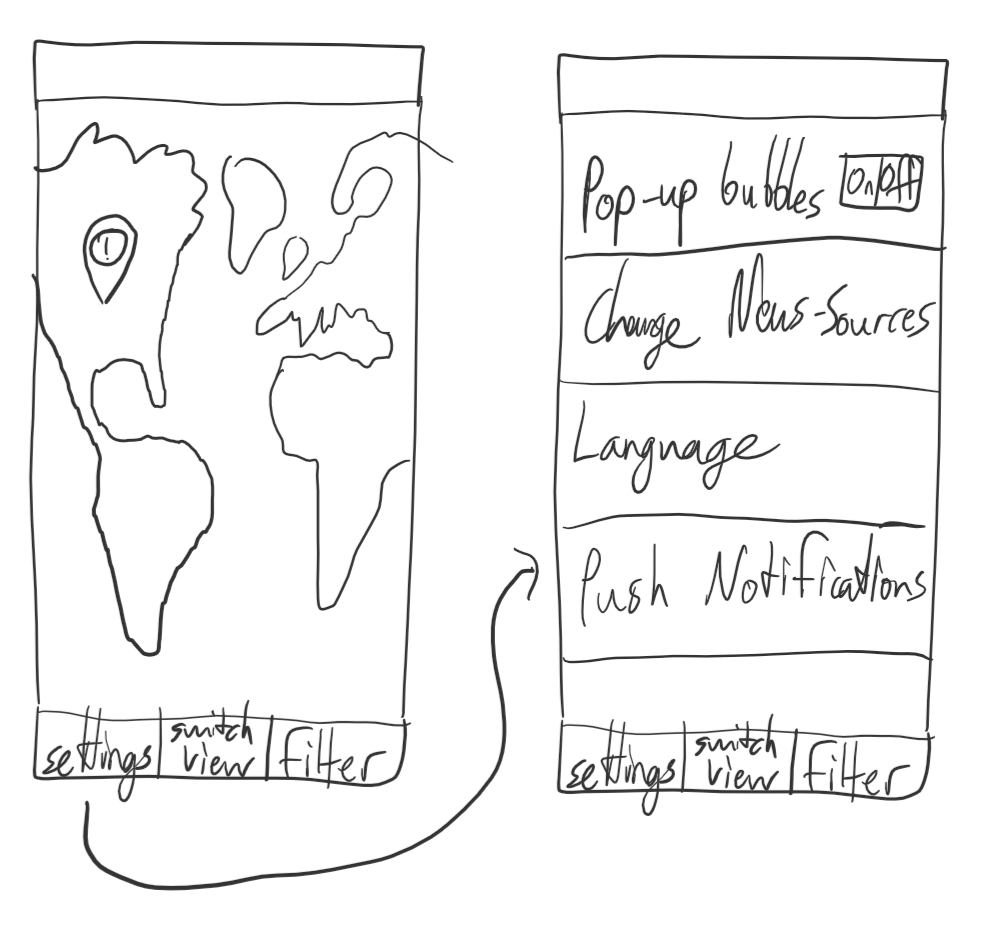 !
settings
switch
view
filter
Pop-up bubbles On/Off
Change News-Sources
Language
Push Notifications
settings
switch
view
filter